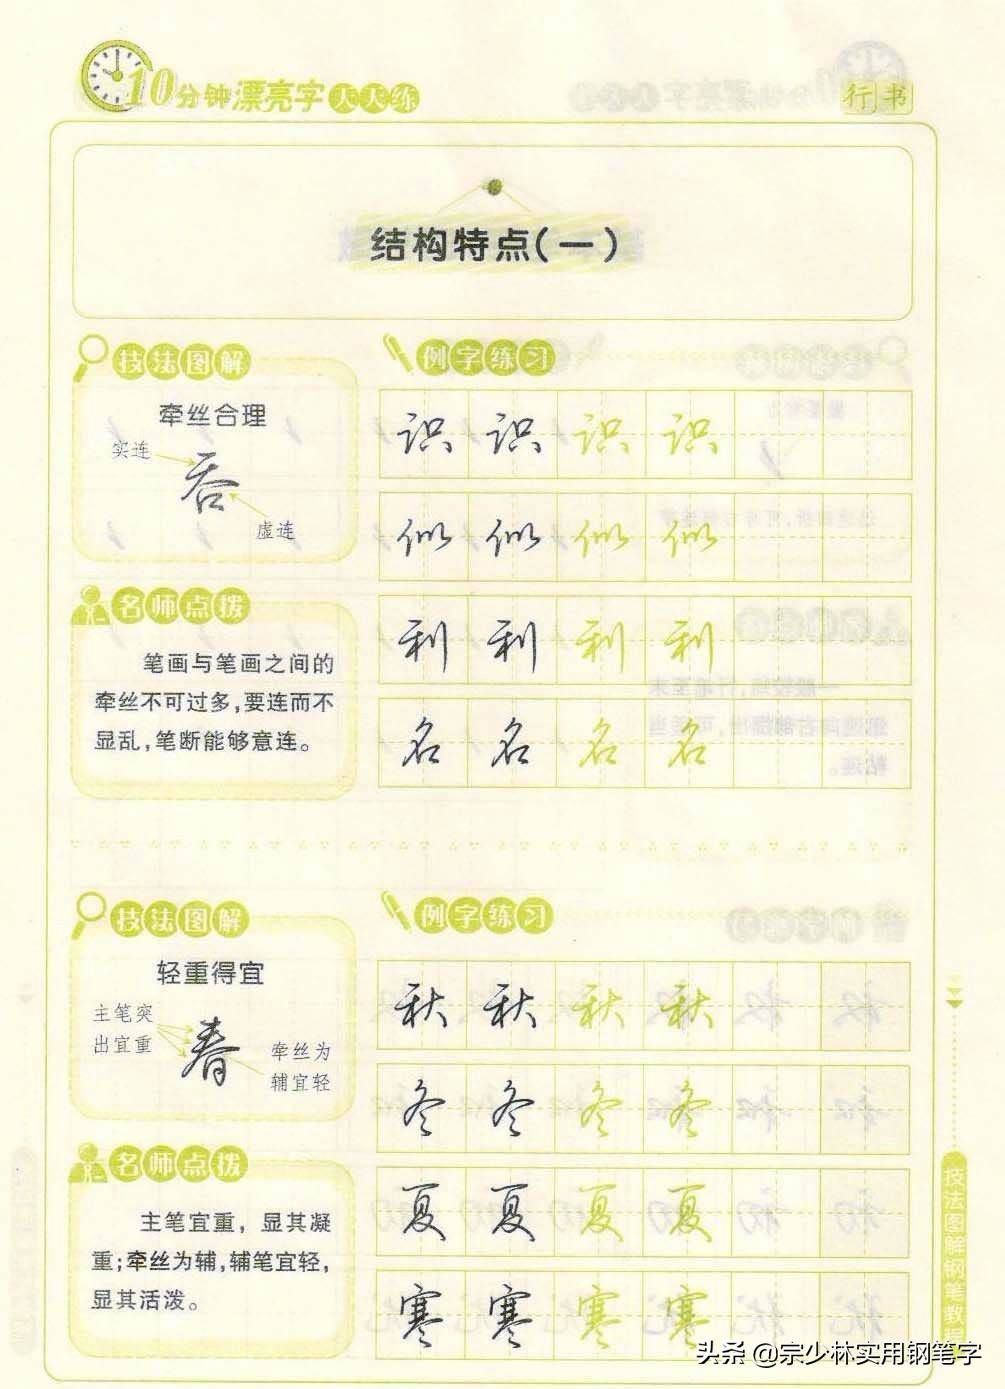 10分钟漂亮字天天练
行书
结构特点(一)
技法图解
牵丝合理
实连
吞
虚连
名师点拨
笔画与笔画之间的
牵丝不可过多,要连而不
显乱,笔断能够意连。
例字练习
识 识 识 识
似 似 似 似
利 利 利 利
名 名 名 名
技法图解
轻重得宜
主笔突
出宜重
春
牵丝为
辅宜轻
名师点拨
主笔宜重,显其凝
重;牵丝为辅,辅笔宜轻,
显其活泼。
例字练习
秋 秋 秋 秋
冬 冬 冬 冬
夏 夏 夏 夏
寒 寒 寒 寒
技法图解钢笔教程
头条 @宗少林实用钢笔字